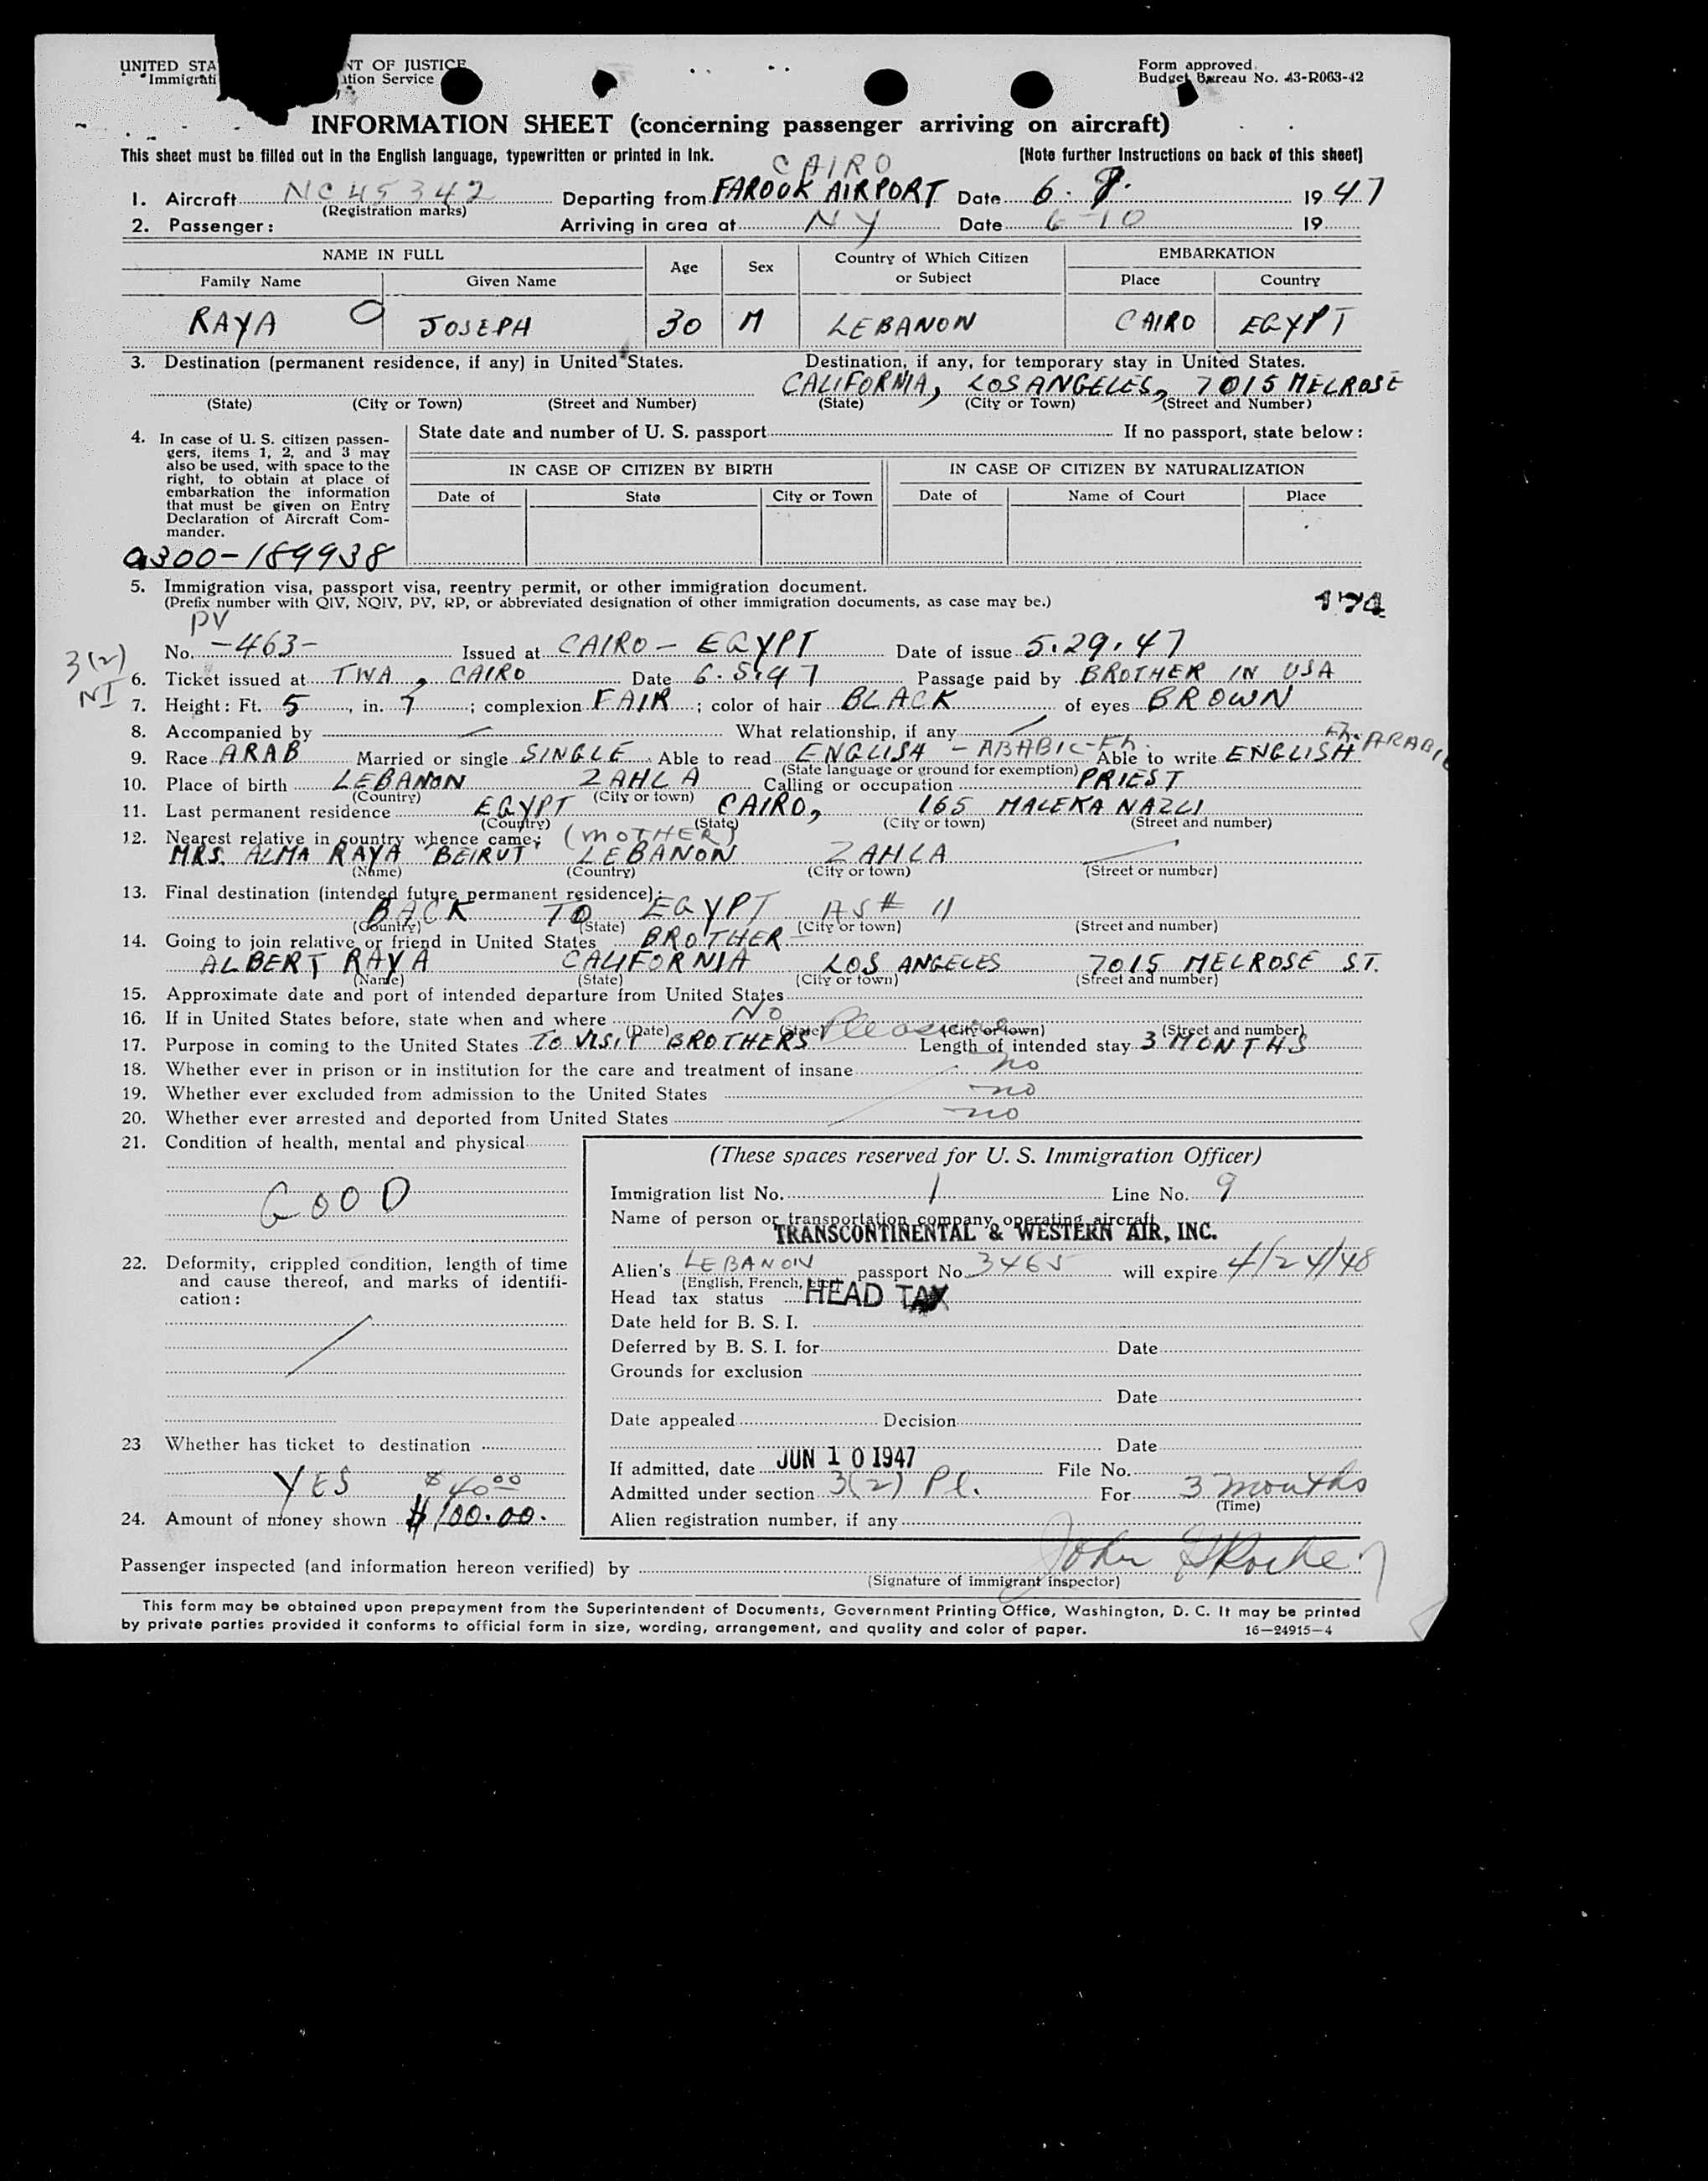 UNITED STA NT OF JUSTICE
Immigrati ation Service
Form approved.
Budget Bureau No. 43-R063-42
INFORMATION SHEET (concerning passenger arriving on aircraft)
This sheet must be filled out in the English language, typewritten or printed in ink. [Note further instructions on back of this sheet]
CAIRO
1. Aircraft NC45342 Departing from FAROUK AIRPORT Date 6. 1947
(Registration marks)
2. Passenger: Arriving in area at NY Date 6-10 19
NAME IN FULL Age Sex Country of Which Citizen or Subject EMBARKATION
Family Name Given Name Place Country
RAYA JOSEPH 30 M LEBANON CAIRO EGYPT
3. Destination (permanent residence, if any) in United States. Destination, if any, for temporary stay in United States.
CALIFORNIA, LOS ANGELES, 7015 MELROSE
(State) (City or Town) (Street and Number) (State) (City or Town) (Street and Number)
4. In case of U. S. citizen passen-
gers, items 1, 2, and 3 may
also be used, with space to the
right, to obtain at place of
embarkation the information
that must be given on Entry
Declaration of Aircraft Com-
mander.
State date and number of U. S. passport If no passport, state below:
IN CASE OF CITIZEN BY BIRTH IN CASE OF CITIZEN BY NATURALIZATION
Date of State City or Town Date of Name of Court Place
0300-189938
5. Immigration visa, passport visa, reentry permit, or other immigration document.
(Prefix number with QIV, NQIV, PV, RP, or abbreviated designation of other immigration documents, as case may be.)
PV
No. -463- Issued at CAIRO - EGYPT Date of issue 5.29.47
3(2)
NI
6. Ticket issued at TWA, CAIRO Date 6.5.47 Passage paid by BROTHER IN USA
7. Height: Ft. 5, in. 7; complexion FAIR; color of hair BLACK of eyes BROWN
8. Accompanied by What relationship, if any
Fh. ARABIC
9. Race ARAB Married or single SINGLE Able to read ENGLISH - ARABIC-Fh. Able to write ENGLISH
(State language or ground for exemption)
10. Place of birth LEBANON ZAHLA Calling or occupation PRIEST
(Country) (City or town)
11. Last permanent residence EGYPT CAIRO, 165 MALEKA NAZLI
(Country) (State) (City or town) (Street and number)
12. Nearest relative in country whence came: (MOTHER)
MRS. ALMA RAYA BEIRUT LEBANON ZAHLA
(Name) (Country) (City or town) (Street or number)
13. Final destination (intended future permanent residece):
BACK TO EGYPT AS # 11
(Country) (State) (City or town) (Street and number)
14. Going to join relative or friend in United States BROTHER
ALBERT RAYA CALIFORNIA LOS ANGELES 7015 MELROSE ST.
(Name) (State) (City or town) (Street and number)
15. Approximate date and port of intended departure from United States
16. If in United States before, state when and where NO
(Date) (State) (City or town) (Street and number)
17. Purpose in coming to the United States TO VISIT BROTHERS Pleasure Length of intended stay 3 MONTHS
18. Whether ever in prison or in institution for the care and treatment of insane no
19. Whether ever excluded from admission to the United States no
20. Whether ever arrested and deported from United States no
21. Condition of health, mental and physical
GOOD
22. Deformity, crippled condition, length of time
and cause thereof, and marks of identifi-
cation:
23 Whether has ticket to destination
YES $40.00
24. Amount of money shown $100.00.
(These spaces reserved for U. S. Immigration Officer)
Immigration list No. 1 Line No. 9
Name of person or transportation company operating aircraft
TRANSCONTINENTAL & WESTERN AIR, INC.
Alien's LEBANON passport No. 3465 will expire 4/24/48
(English, French, etc.)
Head tax status HEAD TAX
Date held for B. S. I.
Deferred by B. S. I. for Date
Grounds for exclusion
Date
Date appealed Decision
Date
If admitted, date JUN 10 1947 File No.
Admitted under section 3(2) Pl. For 3 months
(Time)
Alien registration number, if any
Passenger inspected (and information hereon verified) by John
(Signature of immigrant inspector)
This form may be obtained upon prepayment from the Superintendent of Documents, Government Printing Office, Washington, D. C. It may be printed
by private parties provided it conforms to official form in size, wording, arrangement, and quality and color of paper. 16—24915-4